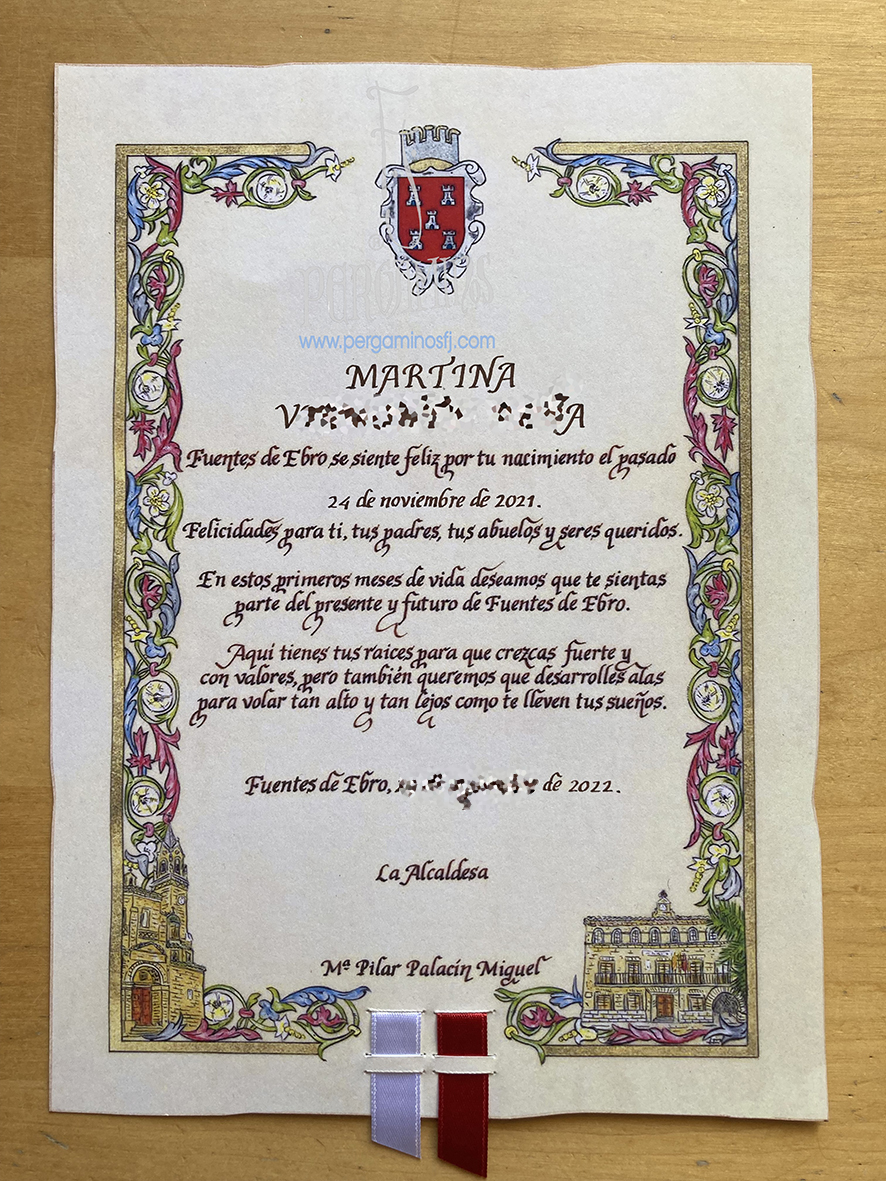 www.pergaminosfj.com
MARTINA
Fuentes de Ebro se siente feliz por tu nacimiento el pasado
24 de noviembre de 2021.
Felicidades para ti, tus padres, tus abuelos y seres queridos.
En estos primeros meses de vida deseamos que te sientas
parte del presente y futuro de Fuentes de Ebro.
Aquí tienes tus raices para que crezcas fuerte y
con valores, pero también queremos que desarrolles alas
para volar tan alto y tan lejos como te lleven tus sueños.
Fuentes de Ebro, de 2022.
La Alcaldesa
Mª Pilar Palacín Miguel